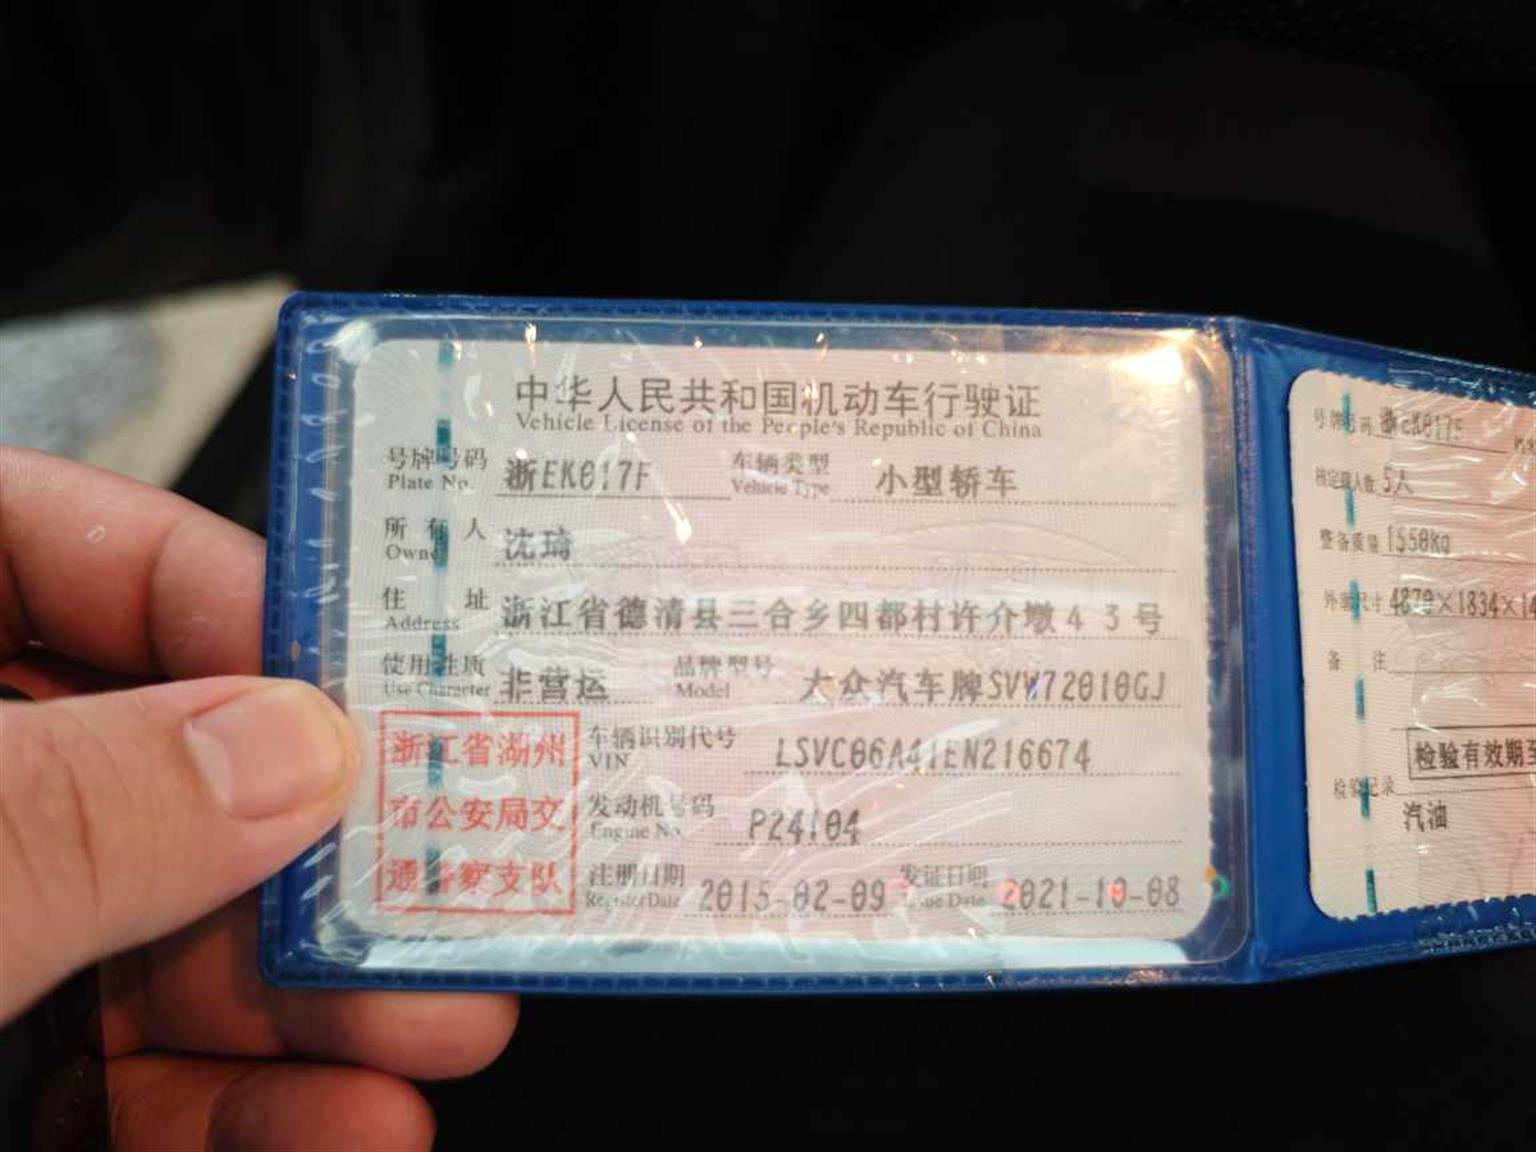 中华人民共和国机动车行驶证
Vehicle License of the People's Republic of China
号牌号码 浙EK017F 车辆类型 小型轿车
Plate No. Vehicle Type
所有人 沈琦
Owner
住址 浙江省德清县三合乡四都村许介墩43号
Address
使用性质 非营运 品牌型号 大众汽车牌SVW72010GJ
Use Character Model
浙江省湖州
市公安局交
通警察支队
车辆识别代号 LSVC06A41EN216674
VIN
发动机号码 P24104
Engine No.
注册日期 2015-02-09 发证日期 2021-10-08
Register Date Issue Date
号牌号码 浙EK017F
核定载人数 5人
整备质量 1550kg
外廓尺寸 4870×1834×1
备注
检验有效期至
检验记录
汽油